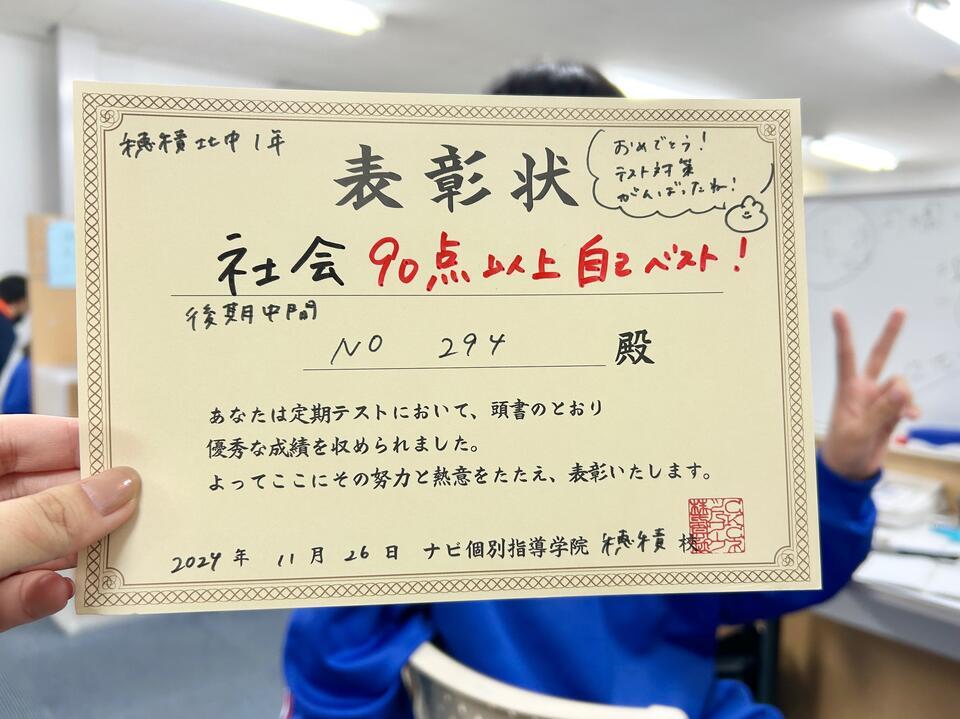 穂積北中1年
表彰状
おめでとう!
テスト対策
がんばったね!
社会 90点以上 自己ベスト!
後期中間
NO 294 殿
あなたは定期テストにおいて、頭書のとおり
優秀な成績を収められました。
よってここにその努力と熱意をたたえ、表彰いたします。
2024年 11月 26日 ナビ個別指導学院 穂積 校